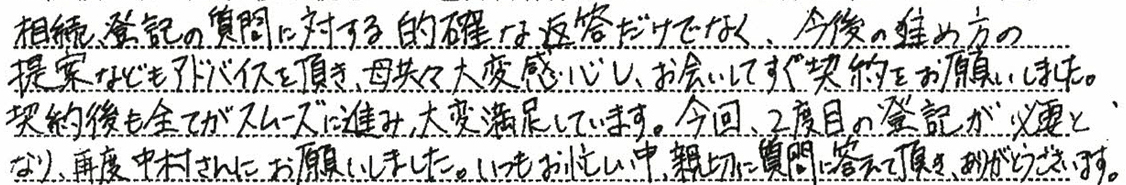 相続、登記の質問に対する的確な返答だけでなく、今後の進め方の
提案などもアドバイスを頂き、母共々大変感心し、お会いしてすぐ契約をお願いしました。
契約後も全てがスムーズに進み、大変満足しています。今回、2度目の登記が必要と
なり、再度中村さんにお願いしました。いつもお忙しい中、親切に質問に答えて頂き、ありがとうございます。